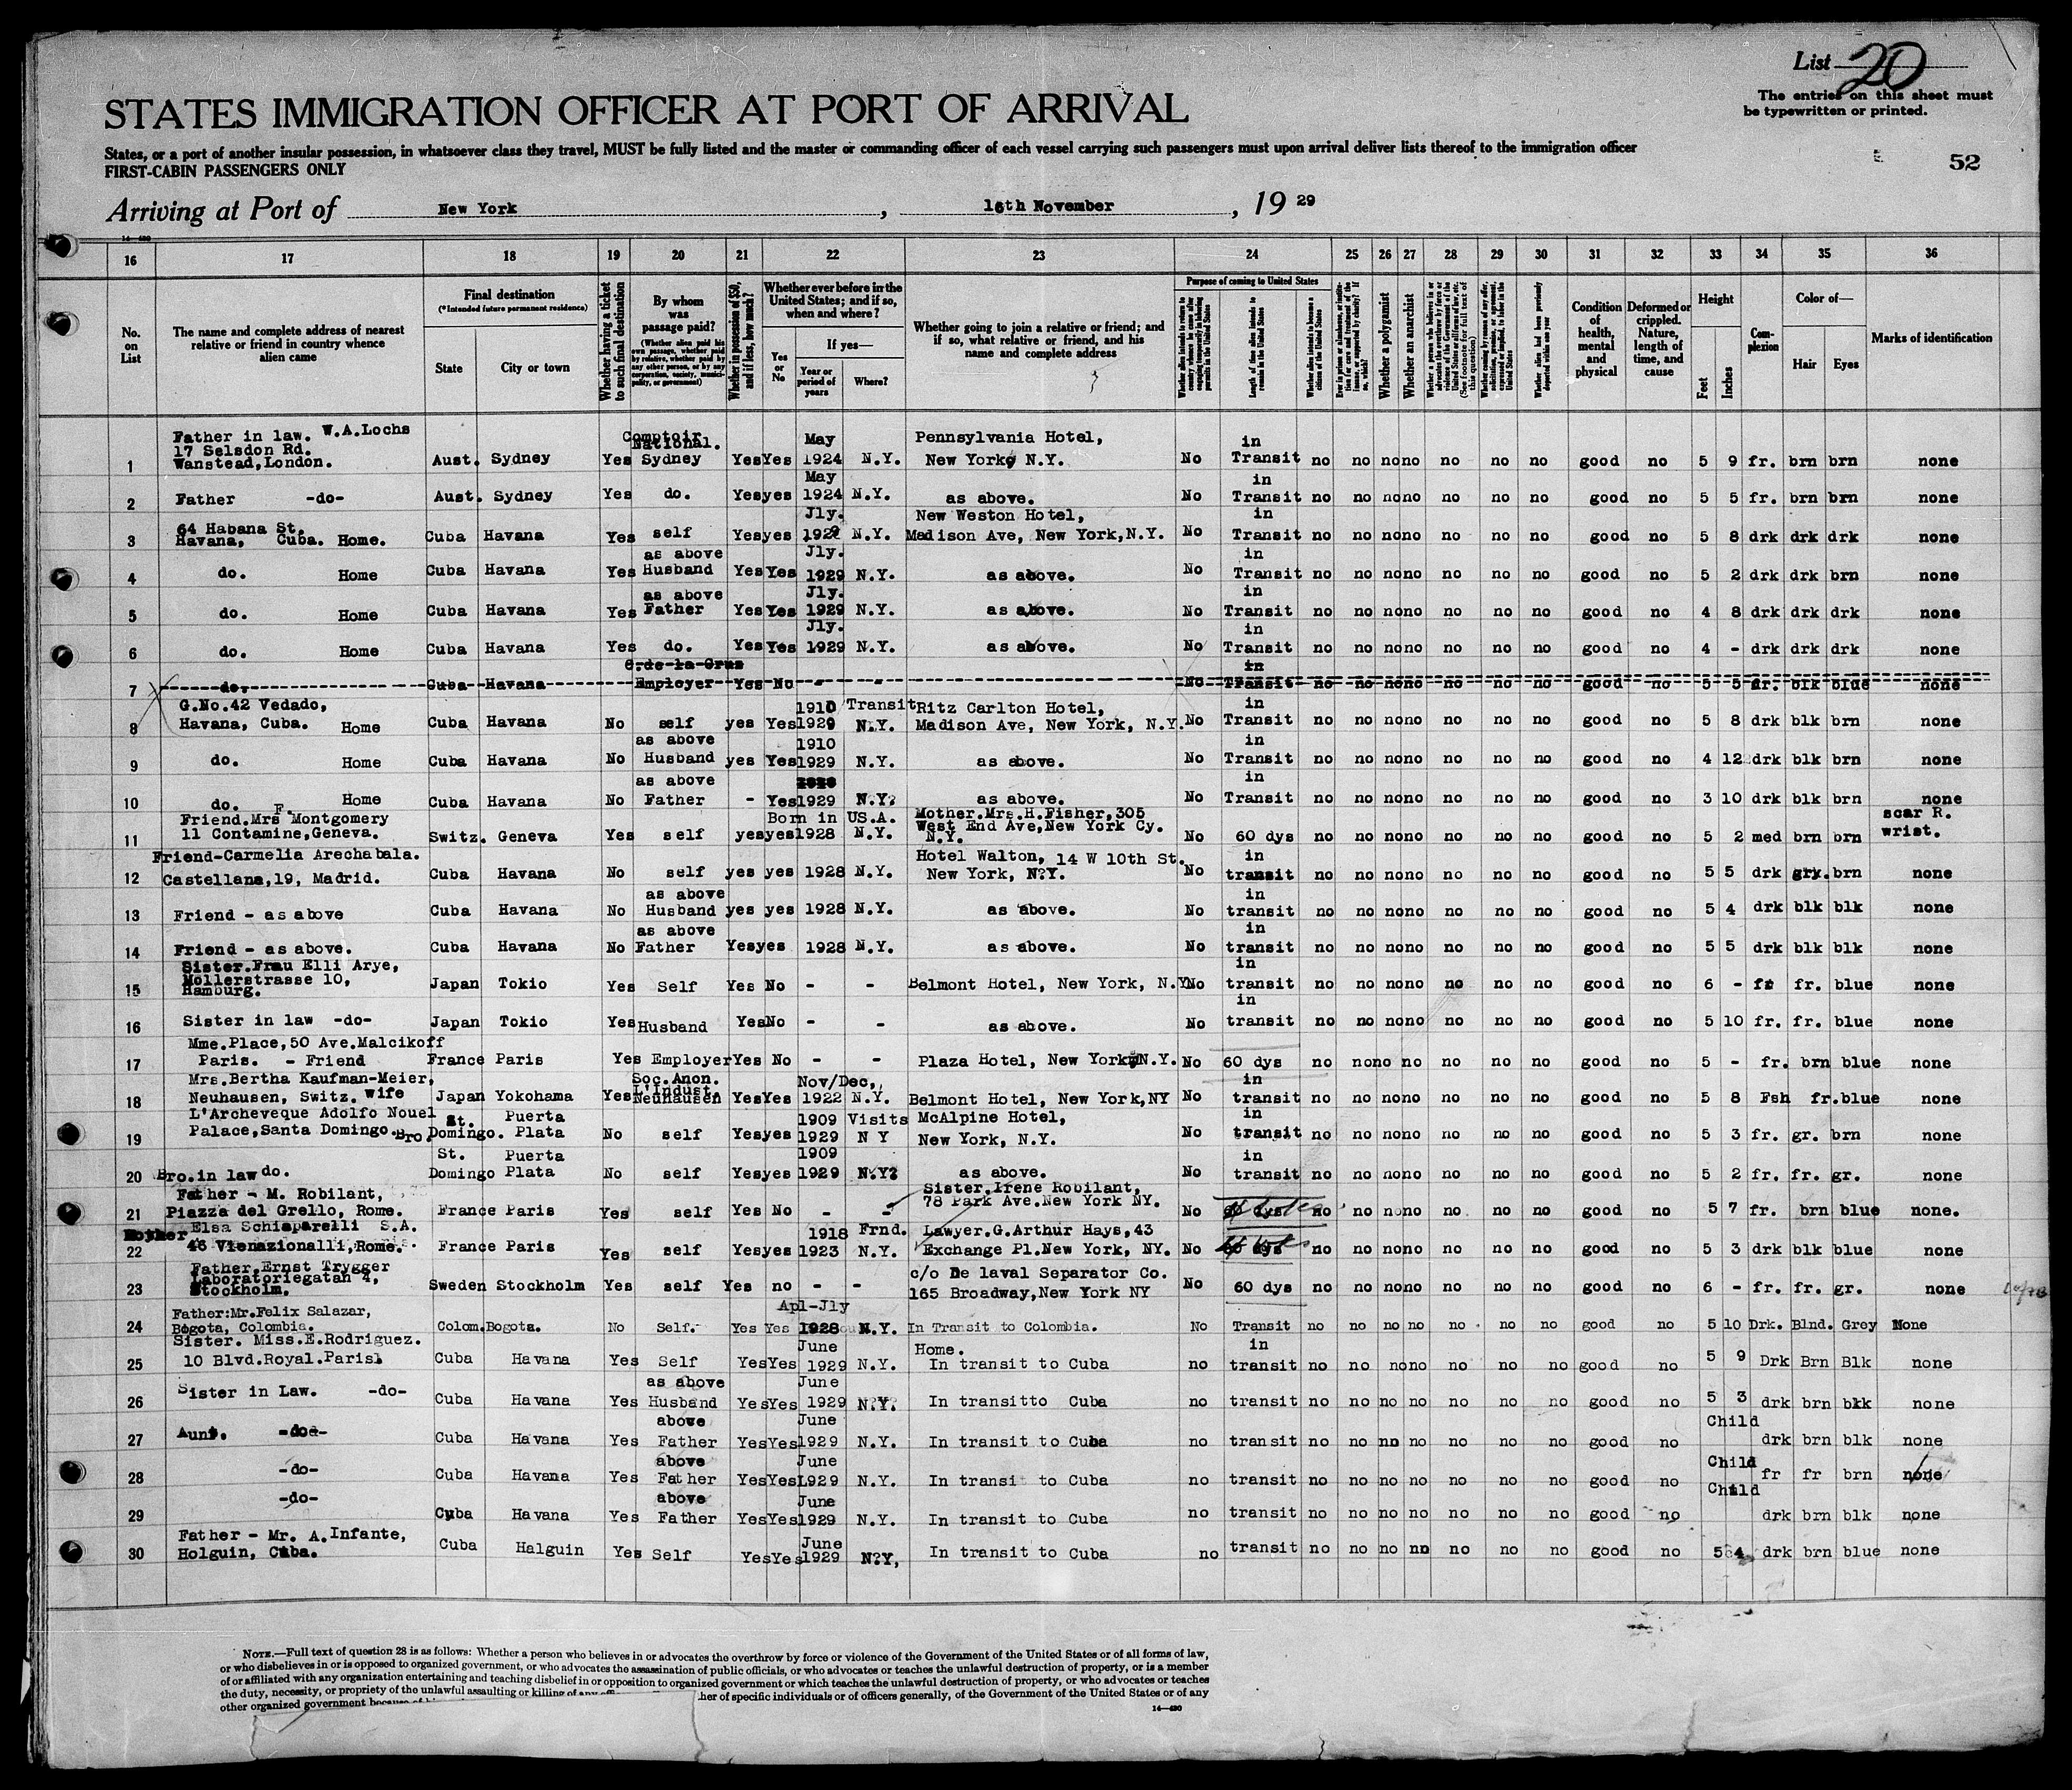 List 20
The entries on this sheet must
be typewritten or printed.
STATES IMMIGRATION OFFICER AT PORT OF ARRIVAL
States, or a port of another insular possession, in whatsoever class they travel, MUST be fully listed and the master or commanding officer of each vessel carrying such passengers must upon arrival deliver lists thereof to the immigration officer
FIRST-CABIN PASSENGERS ONLY
52
Arriving at Port of New York, 16th November, 19 29
14-430
16 17 18 19 20 21 22 23 24 25 26 27 28 29 30 31 32 33 34 35 36
No. on List
The name and complete address of nearest relative or friend in country whence alien came
Final destination
(*Intended future permanent residence)
State
City or town
Whether having a ticket to such final destination
By whom was passage paid?
(Whether alien paid his own passage, whether paid by relative, whether paid by any other person, or by any corporation, society, municipality, or government)
Whether in possession of $50, and if less, how much?
Whether ever before in the United States; and if so, when and where?
Yes or No
If yes—
Year or period of years
Where?
Whether going to join a relative or friend; and if so, what relative or friend, and his name and complete address
Purpose of coming to United States
Length of time alien intends to remain in the United States
Whether alien intends to become a citizen of the United States
Whether a polygamist
Whether an anarchist
Whether alien had been previously deported within one year
Condition of health, mental and physical
Deformed or crippled. Nature, length of time, and cause
Height
Feet
Inches
Complexion
Color of—
Hair
Eyes
Marks of identification
1 Father in law. W.A.Lochs 17 Selsdon Rd. Wanstead,London. Aust. Sydney Yes Comptoir National. Sydney Yes Yes May 1924 N.Y. Pennsylvania Hotel, New York, N.Y. No in Transit no no no no no no no good no 5 9 fr. brn brn none
2 Father -do- Aust. Sydney Yes do. Yes yes May 1924 N.Y. as above. No in Transit no no no no no no no good no 5 5 fr. brn brn none
3 64 Habana St. Havana, Cuba. Home. Cuba Havana Yes self Yes yes Jly. 1929 N.Y. New Weston Hotel, Madison Ave, New York,N.Y. No in Transit no no no no no no no good no 5 8 drk drk drk none
4 do. Home Cuba Havana Yes as above Husband Yes Yes Jly. 1929 N.Y. as above. No in Transit no no no no no no no good no 5 2 drk drk brn none
5 do. Home Cuba Havana Yes as above Father Yes Yes Jly. 1929 N.Y. as above. No in Transit no no no no no no no good no 4 8 drk drk drk none
6 do. Home Cuba Havana Yes do. Yes Yes Jly. 1929 N.Y. as above. No in Transit no no no no no no no good no 4 - drk drk drk none
7 do. Cuba Havana C.de-la-Cruz Employer Yes No - - No in Transit no no no no no no no good no 5 5 fr. blk blue none
8 G.No.42 Vedado, Havana, Cuba. Home Cuba Havana No self yes Yes 1910 1929 Transit N.Y. Ritz Carlton Hotel, Madison Ave, New York, N.Y. No in Transit no no no no no no no good no 5 8 drk blk brn none
9 do. Home Cuba Havana No as above Husband yes Yes 1910 1929 N.Y. as above. No in Transit no no no no no no no good no 4 12 drk blk brn none
10 do. Home Cuba Havana No as above Father - Yes 1929 N.Y. as above. No in Transit no no no no no no no good no 3 10 drk blk brn none
11 Friend.Mrs F. Montgomery 11 Contamine,Geneva. Switz. Geneva Yes self yes yes Born in US.A. 1928 N.Y. Mother.Mrs.H.Fisher,305 West End Ave,New York Cy. N.Y. No 60 dys no no no no no no no good no 5 2 med brn brn scar R. wrist.
12 Friend-Carmelia Arechabala. Castellana,19, Madrid. Cuba Havana No self yes yes 1928 N.Y. Hotel Walton, 14 W 10th St. New York, N?Y. No in transit no no no no no no no good no 5 5 drk gry. brn none
13 Friend - as above Cuba Havana No as above Husband yes yes 1928 N.Y. as above. No in transit no no no no no no no good no 5 4 drk blk blk none
14 Friend - as above. Cuba Havana No as above Father Yes yes 1928 N.Y. as above. No in transit no no no no no no no good no 5 5 drk blk blk none
15 Sister.Frau Elli Arye, Mollerstrasse 10, Hamburg. Japan Tokio Yes Self Yes No - - Belmont Hotel, New York, N.Y. No in transit no no no no no no no good no 6 - fr fr. blue none
16 Sister in law -do- Japan Tokio Yes Husband Yes No - - as above. No in transit no no no no no no no good no 5 10 fr. fr. blue none
17 Mme.Place,50 Ave.Malcikoff Paris. - Friend France Paris Yes Employer Yes No - - Plaza Hotel, New York, N.Y. No 60 dys no no no no no no no good no 5 - fr. brn blue none
18 Mrs.Bertha Kaufman-Meier, Neuhausen, Switz. wife Japan Yokohama Yes Soc.Anon. L'Indust. Neuhausen Yes Yes Nov/Dec, 1922 N.Y. Belmont Hotel, New York,NY No in transit no no no no no no no good no 5 8 Fsh fr. blue none
19 L'Archeveque Adolfo Nouel Palace,Santa Domingo. Bro. St. Domingo. Puerta Plata No self Yes yes 1909 1929 Visits N Y McAlpine Hotel, New York, N.Y. No in transit no no no no no no no good no 5 3 fr. gr. brn none
20 Bro.in law do. St. Domingo Puerta Plata No self Yes yes 1909 1929 N.Y? as above. No in transit no no no no no no no good no 5 2 fr. fr. gr. none
21 Father - M. Robilant, Piazza del Grello, Rome. France Paris Yes self Yes No - - Sister.Irene Robilant, 78 Park Ave.New York NY. No 60 dys no no no no no no no good no 5 7 fr. brn blue none.
22 Mother Elsa Schiaparelli S.A. 46 Vienazionalli,Rome. France Paris Yes self Yes yes 1918 1923 Frnd. N.Y. Lawyer.G.Arthur Hays,43 Exchange Pl.New York, NY. No 60 dys no no no no no no no good no 5 3 drk blk blue none
23 Father,Ernst Trygger Laboratoriegatan 4, Stockholm. Sweden Stockholm Yes self Yes no - - c/o De laval Separator Co. 165 Broadway,New York NY No 60 dys no no no no no no no good no 6 - fr. fr. gr. none
24 Father:Mr.Felix Salazar, Bogota, Colombia. Colom. Bogota. No Self. Yes Yes Apl-Jly 1928 N.Y. In Transit to Colombia. No Transit no no no no no no no good no 5 10 Drk. Blnd. Grey None
25 Sister. Miss.E.Rodriguez. 10 Blvd.Royal.Paris. Cuba Havana Yes Self Yes Yes June 1929 N.Y. Home. In transit to Cuba no in transit no no no no no no no good no 5 9 Drk Brn Blk none
26 Sister in Law. -do- Cuba Havana Yes as above Husband Yes Yes June 1929 N.Y. In transitto Cuba no transit no no no no no no no good no 5 3 drk brn blk none
27 Aunt. -do- Cuba Havana Yes above Father Yes Yes June 1929 N.Y. In transit to Cuba no transit no no nn no no no no good no Child drk brn blk none
28 -do- Cuba Havana Yes above Father Yes Yes June 1929 N.Y. In transit to Cuba no transit no no no no no no no good no Child fr fr brn none
29 -do- Cuba Havana Yes above Father Yes Yes June 1929 N.Y. In transit to Cuba no transit no no no no no no no good no Child drk brn blk none
30 Father - Mr. A.Infante, Holguin, Cuba. Cuba Halguin Yes Self Yes Yes June 1929 N?Y, In transit to Cuba no transit no no no nn no no no good no 5 4 drk brn blue none
NOTE.—Full text of question 28 is as follows: Whether a person who believes in or advocates the overthrow by force or violence of the Government of the United States or of all forms of law,
or who disbelieves in or is opposed to organized government, or who advocates the assassination of public officials, or who advocates or teaches the unlawful destruction of property, or is a member
of or affiliated with any organization entertaining and teaching disbelief in or opposition to organized government or which teaches the unlawful destruction of property, or who advocates or teaches
the duty, necessity, or propriety of the unlawful assaulting or killing of any her of specific individuals or of officers generally, of the Government of the United States or of any
other organized government because of
14-430